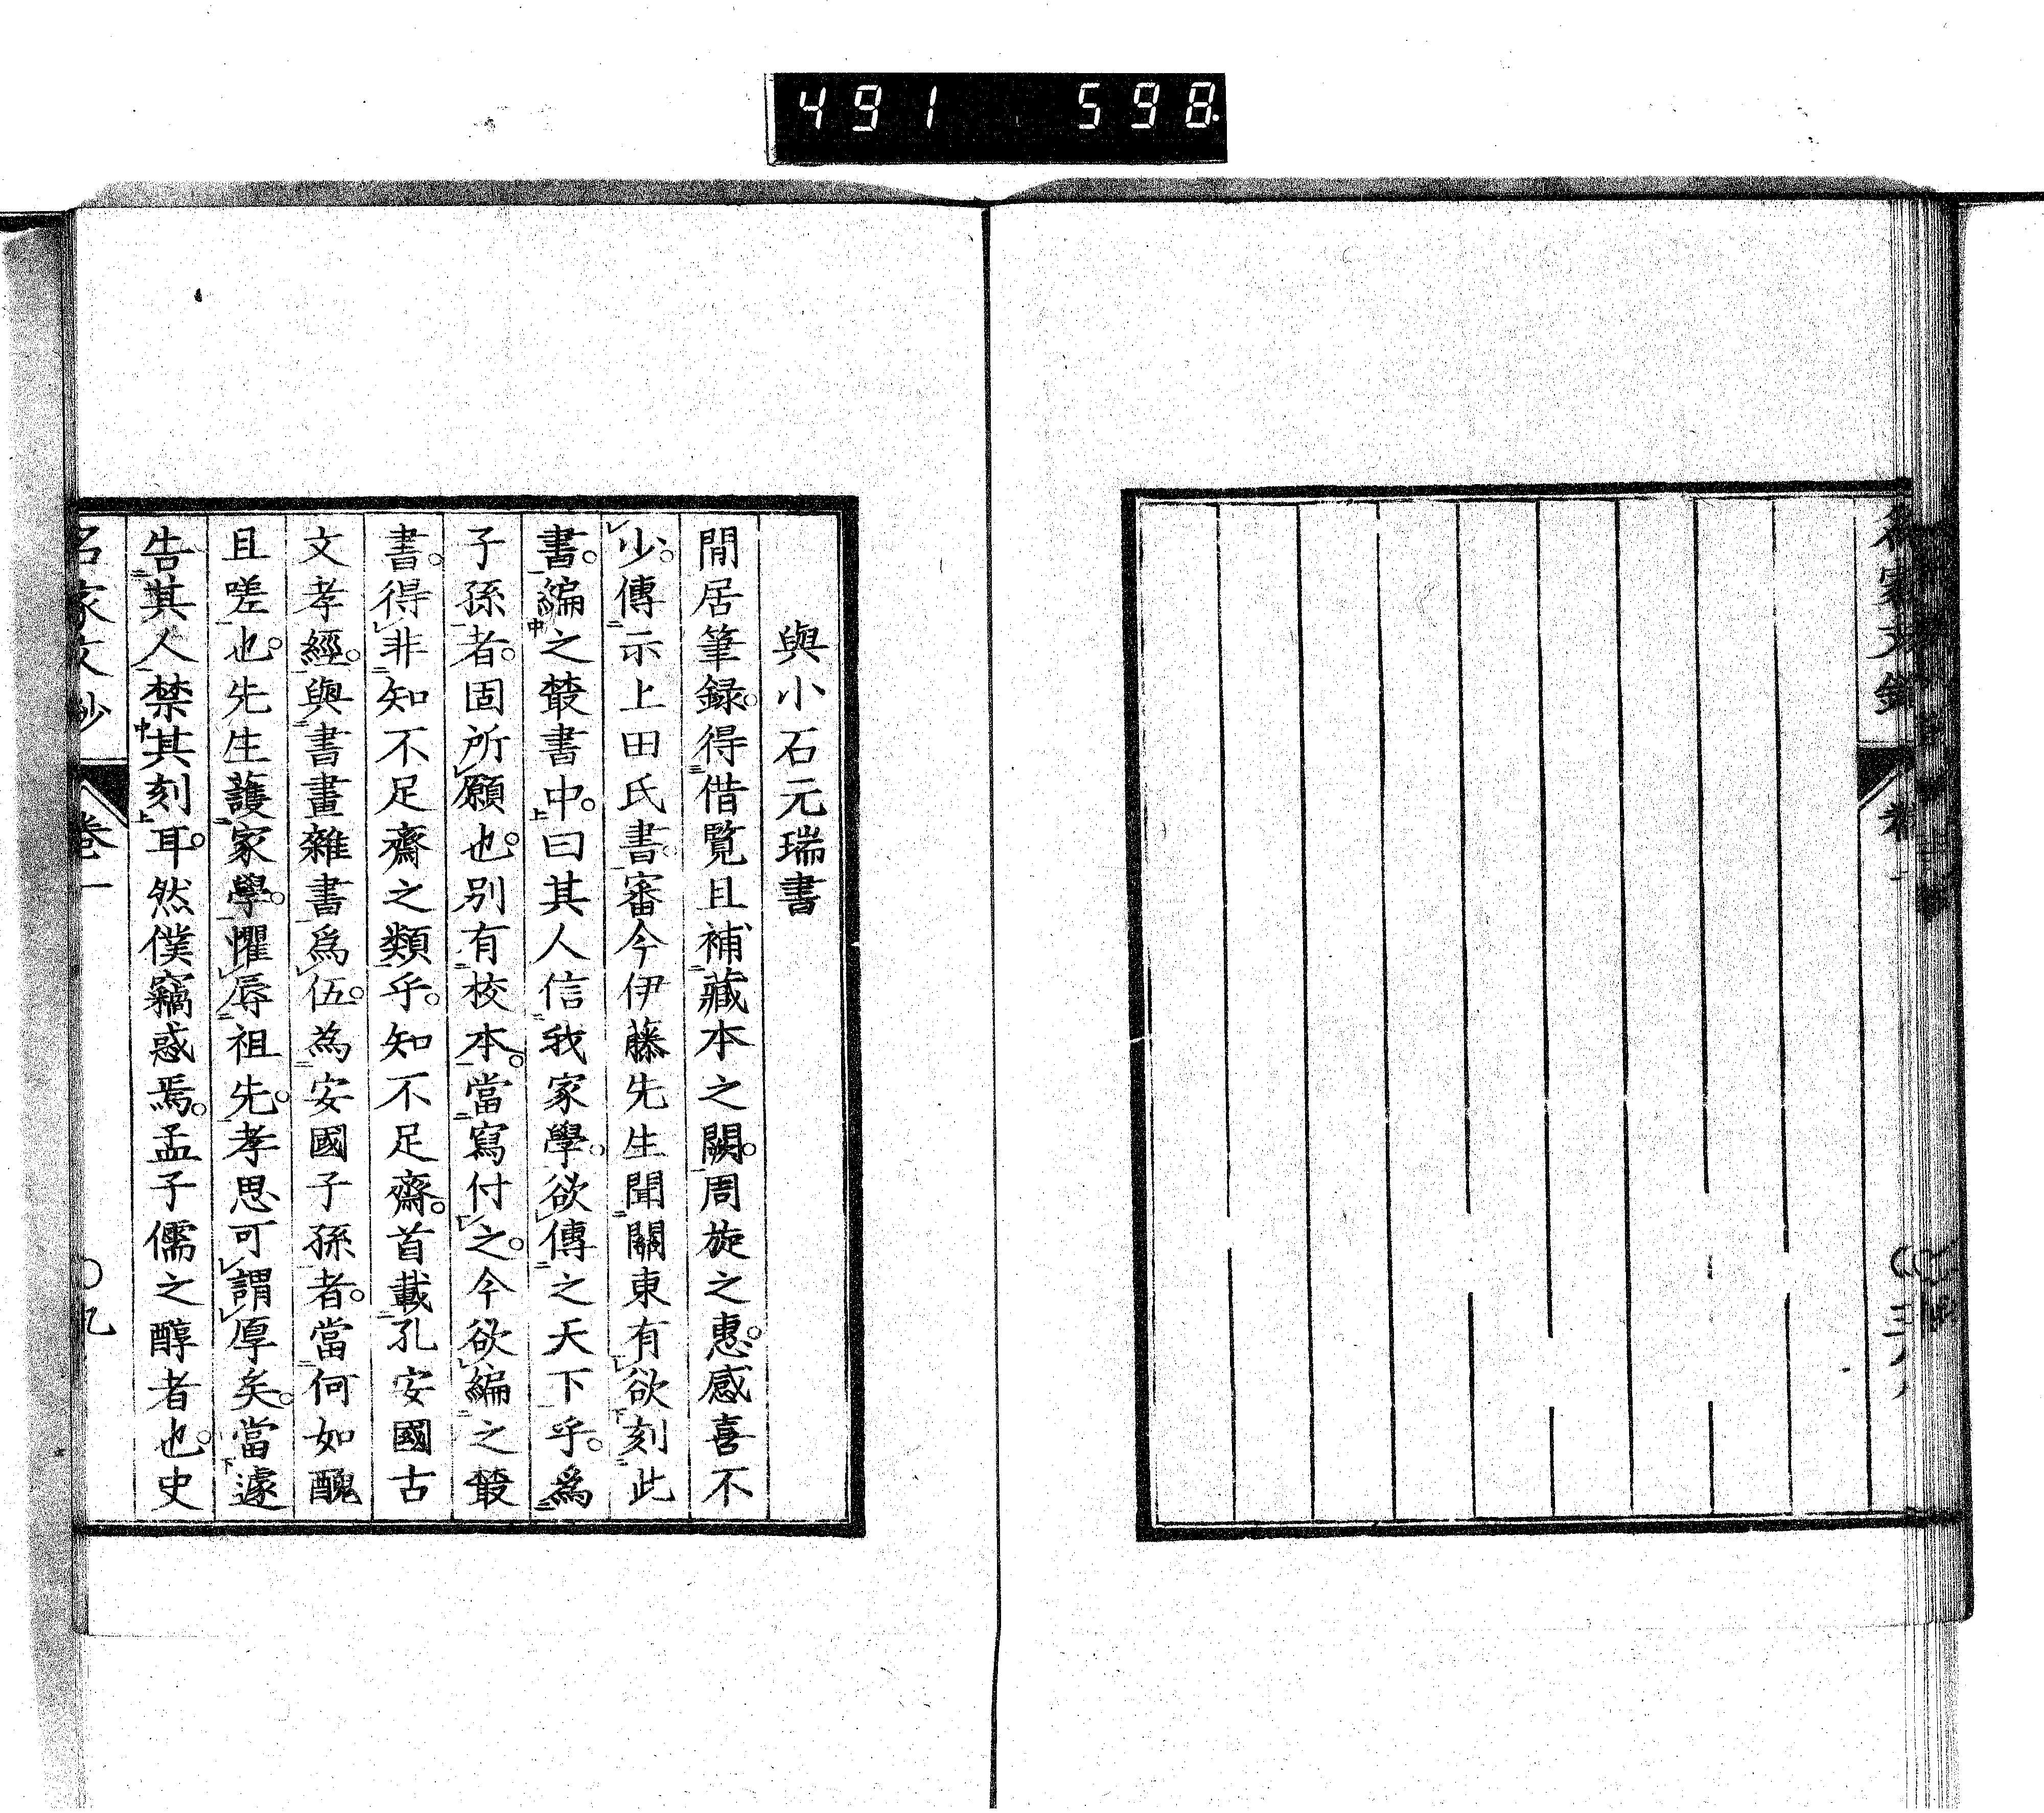 491 598
與小石元瑞書
間居筆録。得借覽且補藏本之闕。周旋之惠。感喜不
少。傳示上田氏書。審今伊藤先生聞關東有欲刻此
書。編之叢書中。曰其人信我家學。欲傳之天下乎。爲
子孫者。固所願也。別有校本。當寫付之。今欲編之叢
書。得非知不足齋之類乎。知不足齋。首載孔安國古
文孝經。與書畫雜書爲伍。為安國子孫者。當何如醜
且嗟也。先生護家學。懼辱祖先。孝思可謂厚矣。當遽
告其人禁其刻耳。然僕竊惑焉。孟子儒之醇者也。史
名家文抄
卷一
〇九